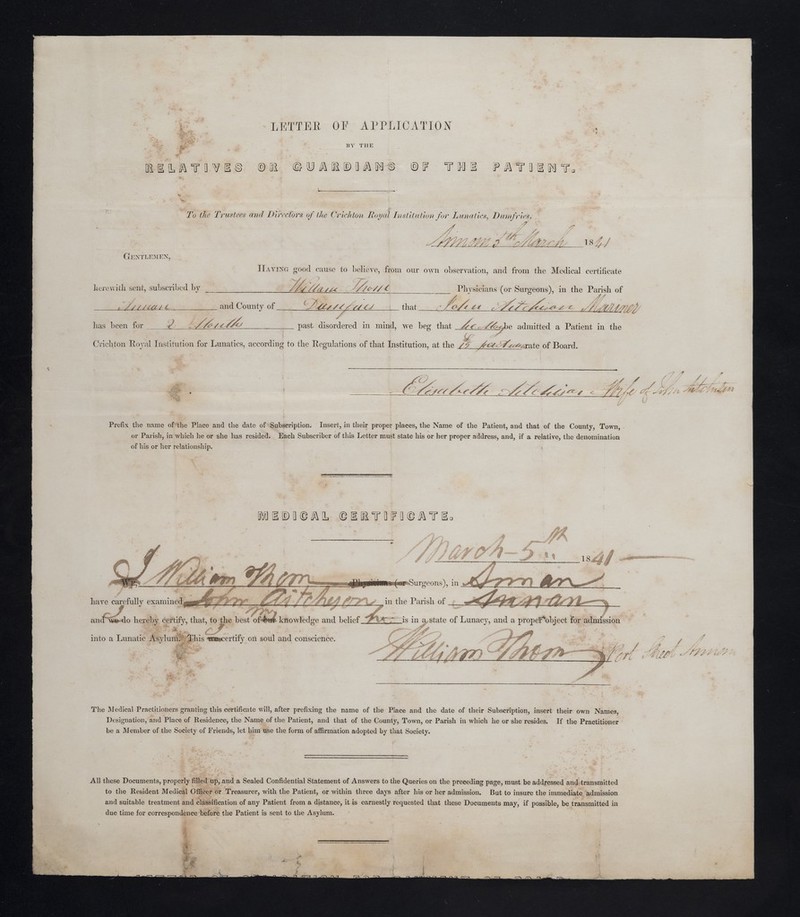 LETTER OF APPLICATION
BY THE
RELATIVES OR GUARDIANS OF THE PATIENT.
To the Trustees and Directors of the Crichton Royal Institution for Lunatics, Dumfries.
Annan 5th March 1841
GENTLEMEN,
HAVING good cause to believe, from our own observation, and from the Medical certificate
herewith sent, subscribed by William Thom Physicians (or Surgeons), in the Parish of
Annan and County of Dumfries that John Aitchison Mariner
has been for 2 Months past disordered in mind, we beg that he may be admitted a Patient in the
Crichton Royal Institution for Lunatics, according to the Regulations of that Institution, at the rate of Board.
Elisabeth Aitchison Wife of John Aitchison
Prefix the name of the Place and the date of Subscription. Insert, in their proper places, the Name of the Patient, and that of the County, Town,
or Parish, in which he or she has resided. Each Subscriber of this Letter must state his or her proper address, and, if a relative, the denomination
of his or her relationship.
MEDICAL CERTIFICATE.
March 5th 1841
I William Thom (or Surgeons), in Annan
have carefully examined John Aitcheson in the Parish of Annan
and I do hereby certify, that, to the best of my knowledge and belief he is in a state of Lunacy, and a proper object for admission
into a Lunatic Asylum. This I certify on soul and conscience.
William Thom Port Street Annan
The Medical Practitioners granting this certificate will, after prefixing the name of the Place and the date of their Subscription, insert their own Names,
Designation, and Place of Residence, the Name of the Patient, and that of the County, Town, or Parish in which he or she resides. If the Practitioner
be a Member of the Society of Friends, let him use the form of affirmation adopted by that Society.
All these Documents, properly filled up, and a Sealed Confidential Statement of Answers to the Queries on the preceding page, must be addressed and transmitted
to the Resident Medical Officer or Treasurer, with the Patient, or within three days after his or her admission. But to insure the immediate admission
and suitable treatment and classification of any Patient from a distance, it is earnestly requested that these Documents may, if possible, be transmitted in
due time for correspondence before the Patient is sent to the Asylum.